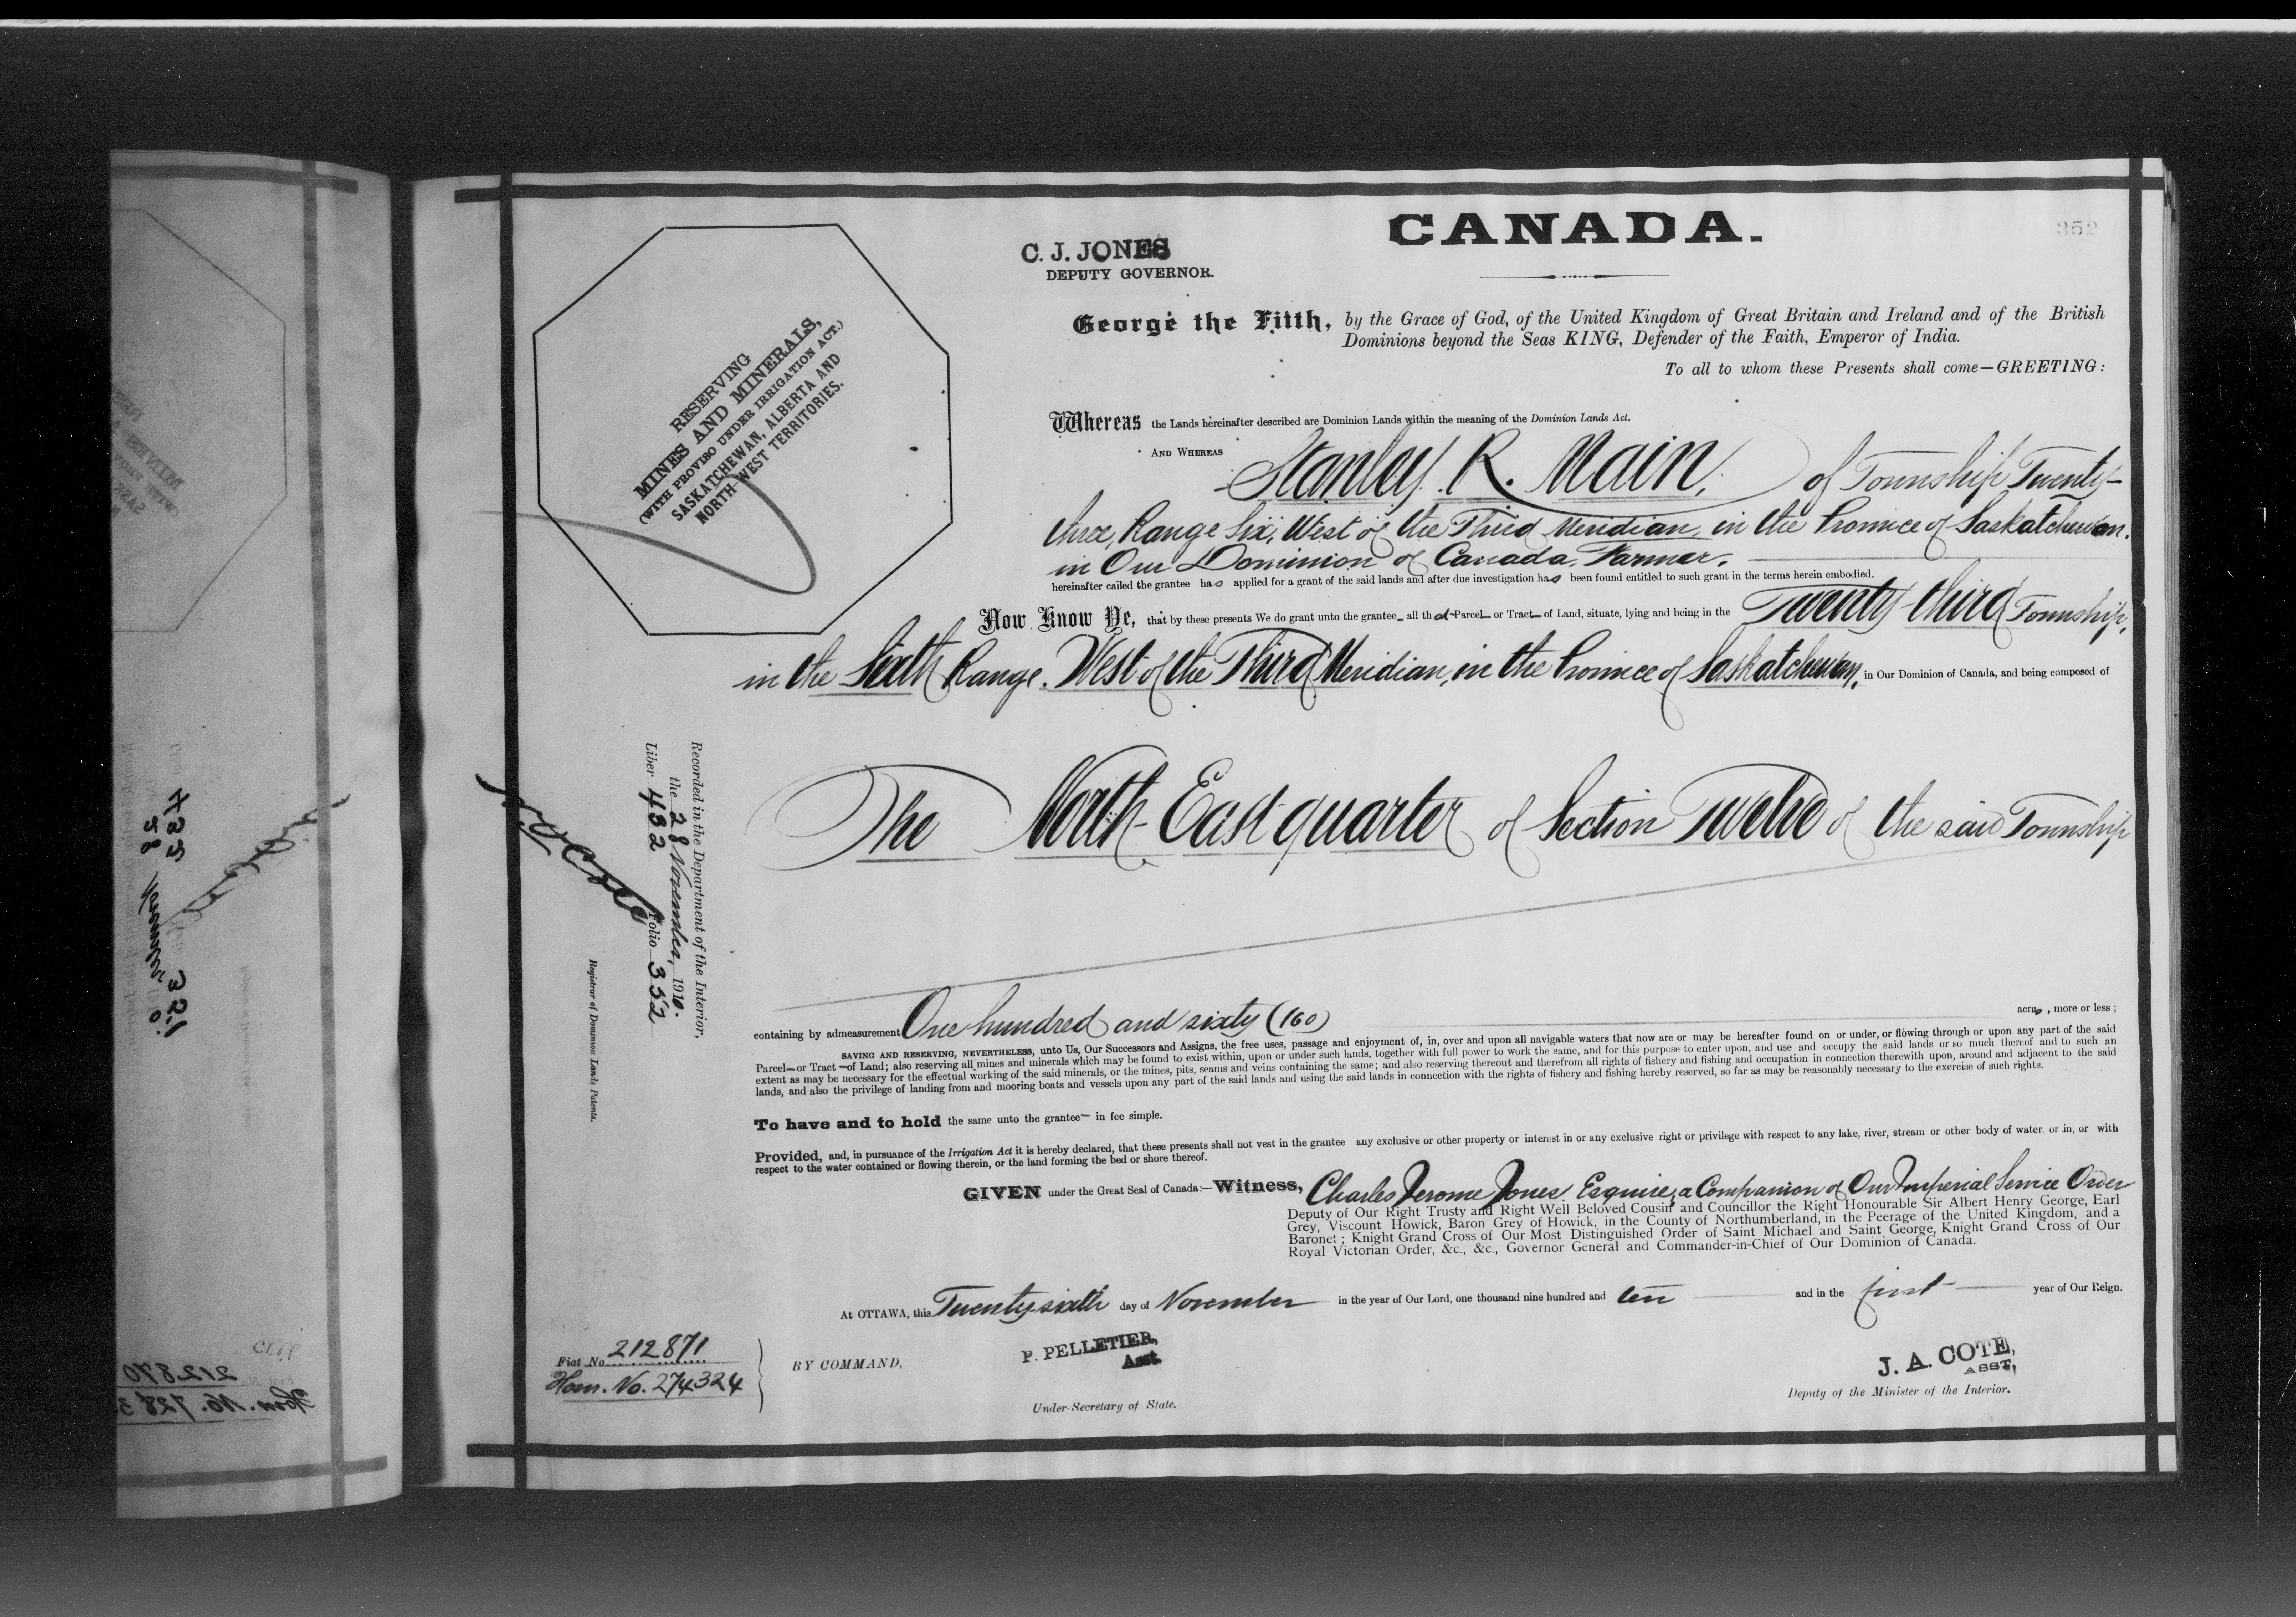 CANADA.
352
C. J. JONES
DEPUTY GOVERNOR.
George the Fifth, by the Grace of God, of the United Kingdom of Great Britain and Ireland and of the British
Dominions beyond the Seas KING, Defender of the Faith, Emperor of India.
To all to whom these Presents shall come—GREETING:
RESERVING
MINES AND MINERALS,
(WITH PROVISO UNDER IRRIGATION ACT.)
SASKATCHEWAN, ALBERTA AND
NORTH-WEST TERRITORIES.
Whereas the Lands hereinafter described are Dominion Lands within the meaning of the Dominion Lands Act.
AND WHEREAS Stanley R. Main, of Township Twenty-
three, Range Six, West of the Third Meridian, in the Province of Saskatchewan.
in Our Dominion of Canada, Farmer.
hereinafter called the grantee has applied for a grant of the said lands and after due investigation has been found entitled to such grant in the terms herein embodied.
Now Know Ye, that by these presents We do grant unto the grantee all that Parcel or Tract of Land, situate, lying and being in the Twenty-third Township,
in the Sixth Range, West of the Third Meridian, in the Province of Saskatchewan, in Our Dominion of Canada, and being composed of
The North-East quarter of Section Twelve of the said Township
Recorded in the Department of the Interior,
the 28 November, 1910.
Liber 432 Folio 352
N O Coté
Registrar of Dominion Lands Patents.
containing by admeasurement One hundred and sixty (160) acres, more or less;
SAVING AND RESERVING, NEVERTHELESS, unto Us, Our Successors and Assigns, the free uses, passage and enjoyment of, in, over and upon all navigable waters that now are or may be hereafter found on or under, or flowing through or upon any part of the said
Parcel or Tract of Land; also reserving all mines and minerals which may be found to exist within, upon or under such lands, together with full power to work the same, and for this purpose to enter upon, and use and occupy the said lands or so much thereof and to such an
extent as may be necessary for the effectual working of the said minerals, or the mines, pits, seams and veins containing the same; and also reserving thereout and therefrom all rights of fishery and fishing and occupation in connection therewith upon, around and adjacent to the said
lands, and also the privilege of landing from and mooring boats and vessels upon any part of the said lands and using the said lands in connection with the rights of fishery and fishing hereby reserved, so far as may be reasonably necessary to the exercise of such rights.
To have and to hold the same unto the grantee in fee simple.
Provided, and, in pursuance of the Irrigation Act it is hereby declared, that these presents shall not vest in the grantee any exclusive or other property or interest in or any exclusive right or privilege with respect to any lake, river, stream or other body of water, or in, or with
respect to the water contained or flowing therein, or the land forming the bed or shore thereof.
GIVEN under the Great Seal of Canada:—Witness, Charles Jerome Jones Esquire, a Companion of Our Imperial Service Order
Deputy of Our Right Trusty and Right Well Beloved Cousin and Councillor the Right Honourable Sir Albert Henry George, Earl
Grey, Viscount Howick, Baron Grey of Howick, in the County of Northumberland, in the Peerage of the United Kingdom, and a
Baronet; Knight Grand Cross of Our Most Distinguished Order of Saint Michael and Saint George, Knight Grand Cross of Our
Royal Victorian Order, &c., &c., Governor General and Commander-in-Chief of Our Dominion of Canada.
At OTTAWA, this Twenty-sixth day of November in the year of Our Lord, one thousand nine hundred and ten and in the first year of Our Reign.
Fiat No. 212871
Hom. No. 274324
BY COMMAND,
P. PELLETIER,
Asst.
Under-Secretary of State.
J. A. COTE,
ASST,
Deputy of the Minister of the Interior.